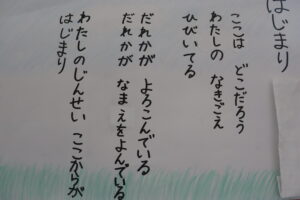 はじまり
ここは どこだろう
わたしの なきごえ
ひびいてる
だれかが よろこんでいる
だれかが なまえをよんでいる
わたしのじんせい ここからが
はじまり